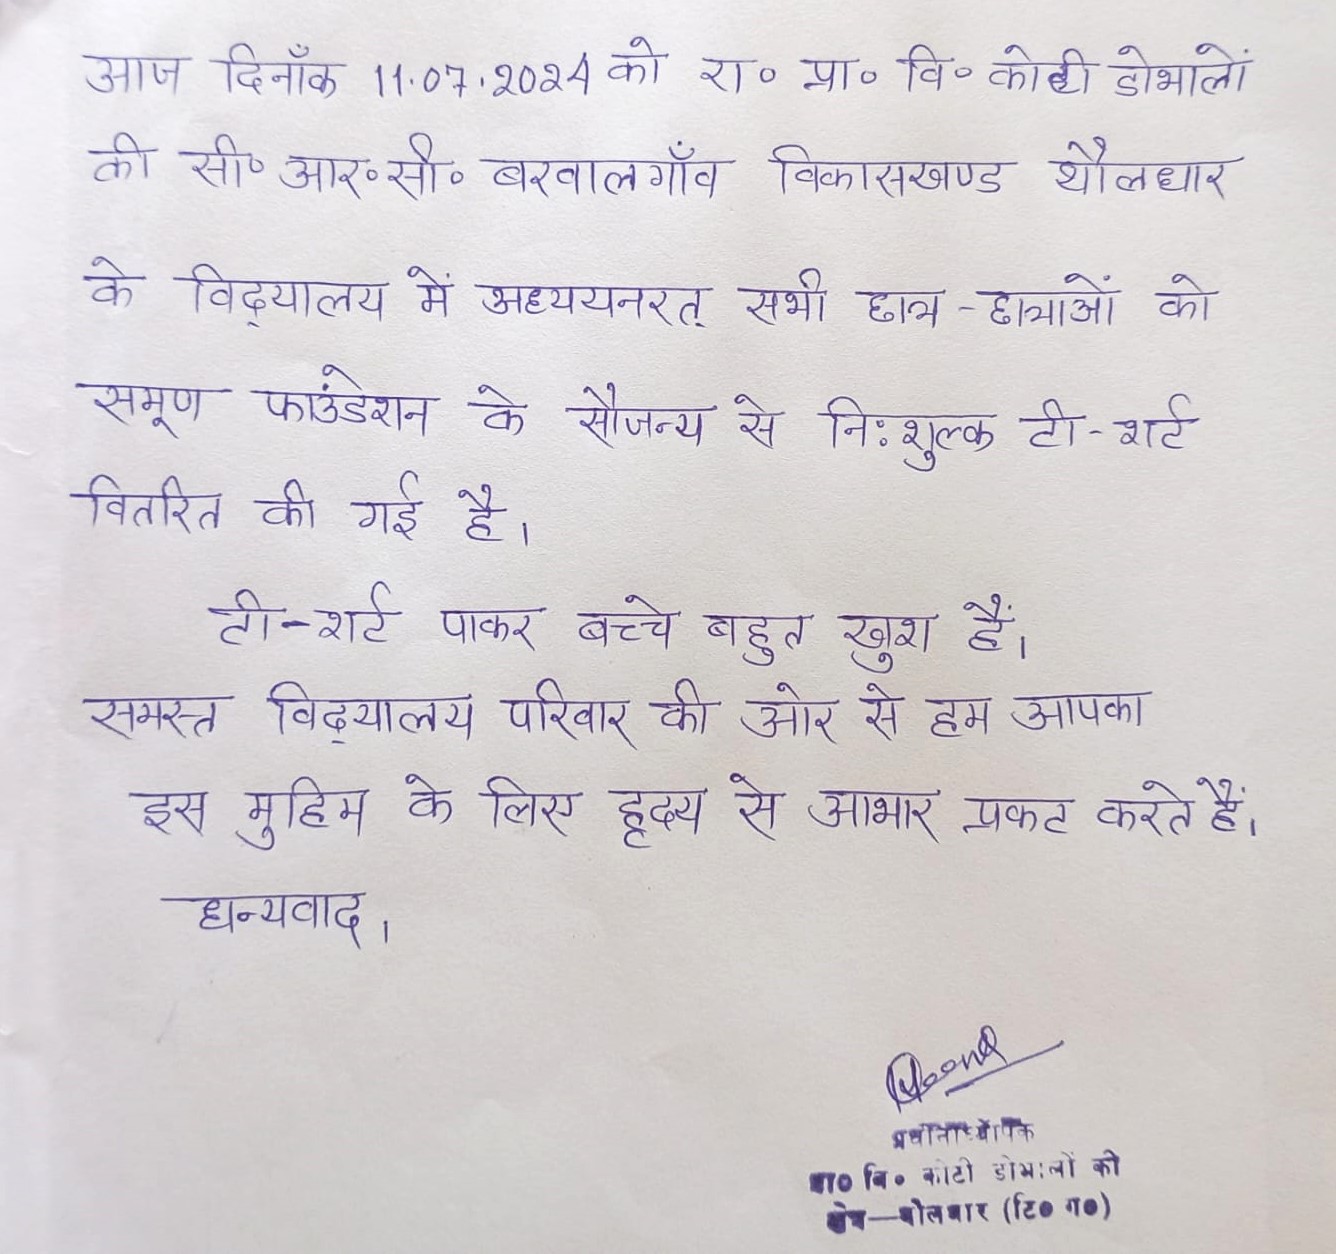 आज दिनाँक 11.07.2024 को रा० प्रा० वि० कोटी डोभालों
की सी० आर० सी० बरवालगाँव विकासखण्ड थौलधार
के विद्यालय में अध्ययनरत् सभी छात्र-छात्राओं को
समूण फाउंडेशन के सौजन्य से निःशुल्क टी-शर्ट
वितरित की गई है।
टी-शर्ट पाकर बच्चे बहुत खुश हैं।
समस्त विद्यालय परिवार की ओर से हम आपका
इस मुहिम के लिए हृदय से आभार प्रकट करते हैं।
धन्यवाद।
प्रधानाध्यापक
वि० कोटी डोभालों की
थौलधार (टि० ग०)